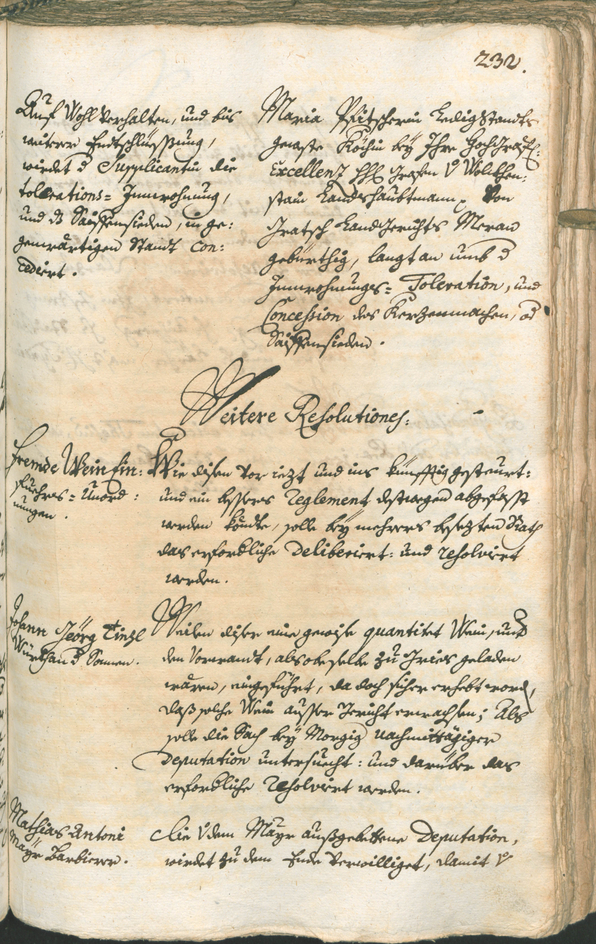 232.
Auf Wohl verhalten, und bis
weitere Entschlüssung,
wirdet d Supplicantin die
tolerations= Innwohnung,
und ds Saiffensieden, in ge:
genwärtigen Standt con:
cediert.
Maria Pfitscherin ledig Standts
geweste Köchin bey Ihro Hochgräfl:
Excellenz Hl Grafen v Welsen:
stain Landtshaubtmann. Von
Gratsch Landtgerichts Meran
gebürthig, langt an umb d
Innwohnungs= Toleration, und
Concession des Kerzenmachen, od
Saiffensieden.
Weitere Resolutiones:
fremde Wein Ein:
fuehres= Unord:
nungen.
Wie disen vor iezt und ins künfftig gesteurt:
und ein bessers Reglement destwegen abgefasst
werden köndte, solle bey mehrers besezten Rath
das erforderliche deliberiert: und resolviert
werden.
Johann Geörg Tinzl
Würth an d Sonnen.
Weilen diser eine gewise quantitet Wein, unter
den Vorwandt, als ob selbe zu Gries geladen
wären, eingeführt, da doch sicher erhebt word,
dass solche Wein ausser Gericht erwachsen; Als
solle die Sach bey Morgig nachmittägiger
Deputation untersucht: und darüber das
erforderliche resolviert werden.
Mathias Antoni
Mayr Barbierer.
Die v dem Mayr aussgebettene Deputation,
wirdet zu dem Ende verwilliget, damit